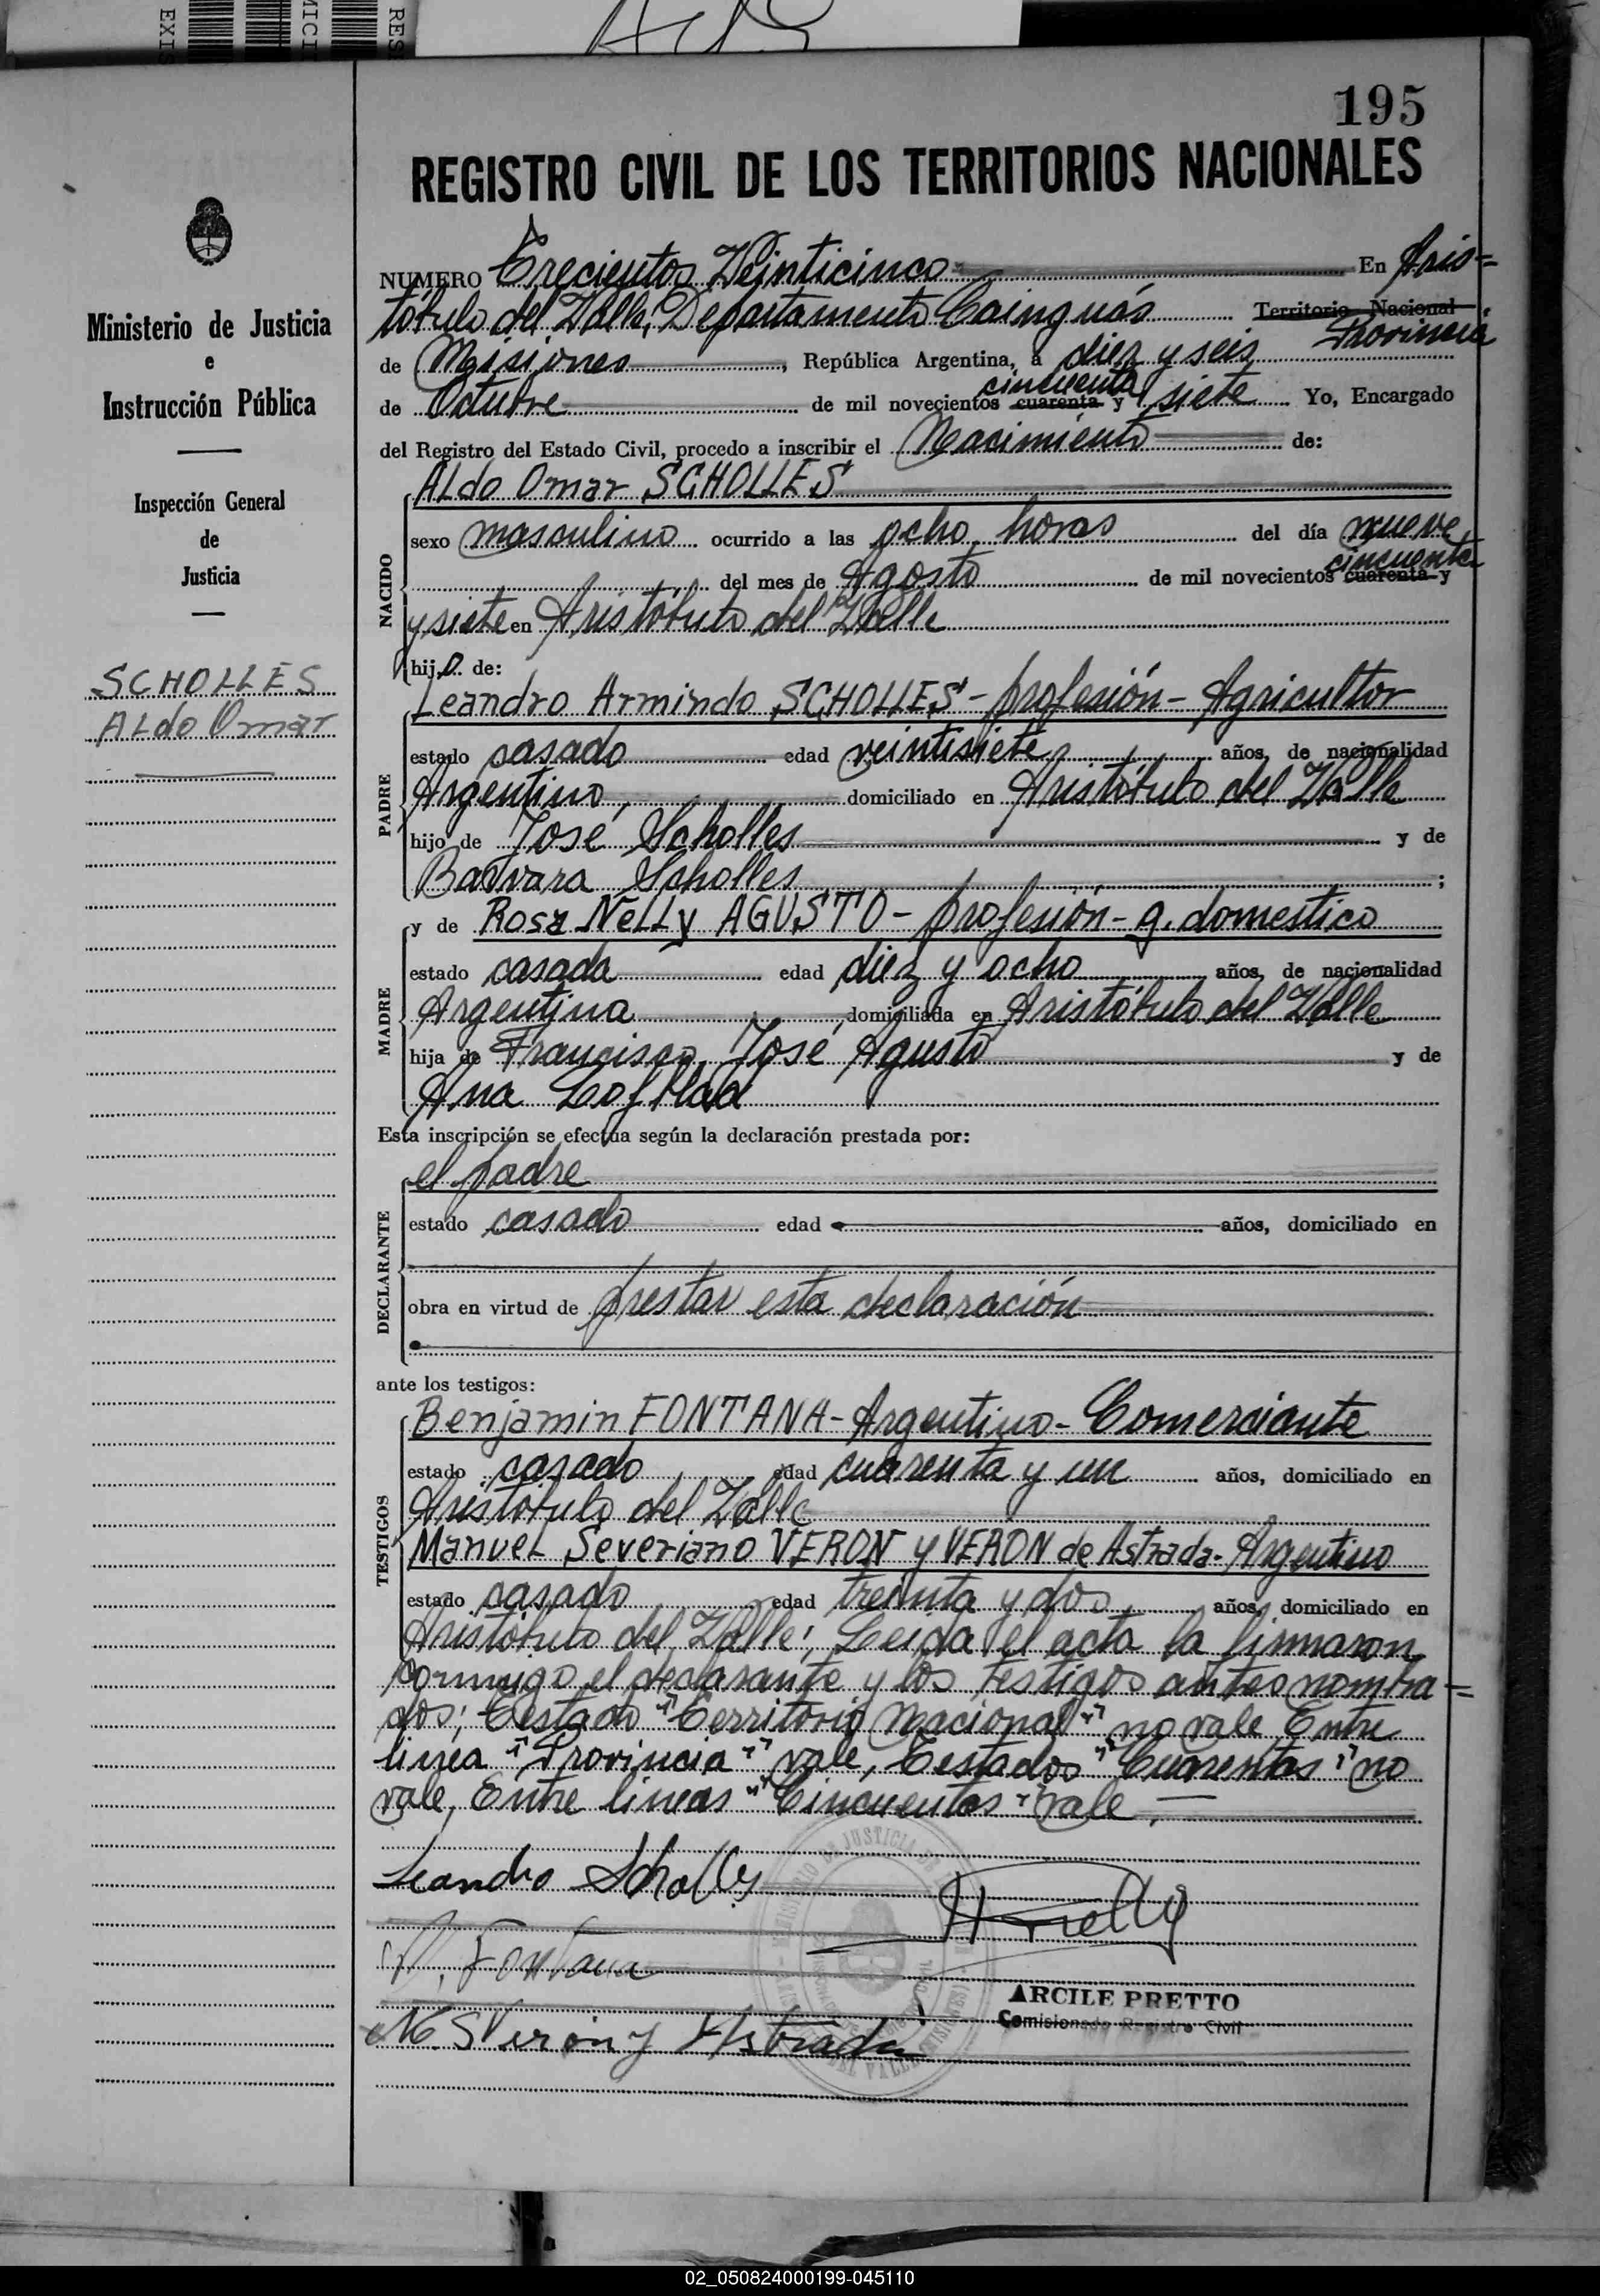 195
REGISTRO CIVIL DE LOS TERRITORIOS NACIONALES
NUMERO Trecientos Veinticinco En Aris=
tóbulo del Valle, Departamento Cainguás Territorio Nacional
Provincia
de Misiones, República Argentina, a diez y seis
cincuenta
de Octubre de mil novecientos cuarenta y siete Yo, Encargado
del Registro del Estado Civil, procedo a inscribir el Nacimiento de:
ALdo Omar SCHOLLES
NACIDO
sexo masculino ocurrido a las ocho horas del día nueve
cincuenta
del mes de Agosto de mil novecientos cuarenta y
y siete en Aristóbulo del Valle
hijo de:
Leandro Armindo SCHOLLES - profesión - Agricultor
PADRE
estado casado edad veintisiete años, de nacionalidad
Argentino domiciliado en Aristóbulo del Valle
hijo de José Scholles y de
Barvara Scholles;
MADRE
y de Rosa NeLLy AGUSTO - profesión - q. domestico
estado casada edad diez y ocho años, de nacionalidad
Argentina domiciliada en Aristóbulo del Valle
hija de Francisco José Agusto y de
Ana
Esta inscripción se efectúa según la declaración prestada por:
el padre
DECLARANTE
estado casado edad años, domiciliado en
obra en virtud de prestar esta declaración
ante los testigos:
TESTIGOS
Benjamin FONTANA - Argentino - Comerciante
estado casado edad cuarenta y un años, domiciliado en
Aristóbulo del Valle
ManueL Severiano VERON y VERON de Astrada - Argentino
estado casado edad treinta y dos años, domiciliado en
Aristóbulo del Valle; Leida el acta la firmaron
conmigo el declarante y los testigos antes nombra=
dos; Testado "Territorio Nacional" no vale Entre
linea "Provincia" vale, Testados "Cuarentas" no
vale, Entre lineas "Cincuentas" vale.
Leandro Scholles
Fontana
M. S Veron y Astrada
ARCILE PRETTO
Comisionado Registro Civil
Ministerio de Justicia
e
Instrucción Pública
Inspección General
de
Justicia
SCHOLLES
ALdo Omar
02_050824000199-045110